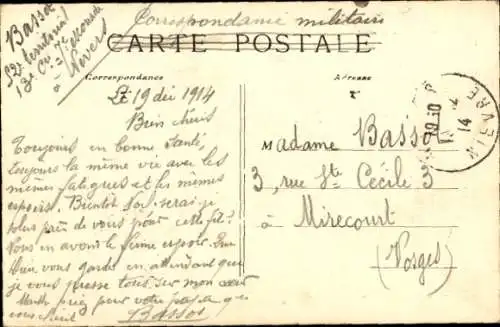 Bassot
52e Territorial
13e Cie 7e escouade
à Nevers
Correspondance militaire
CARTE POSTALE
Correspondance
Adresse
Le 19 déc 1914
Bien chéris
Toujours en bonne santé,
toujours la même vie avec les
mêmes fatigues et les mêmes
espoirs. Bientôt serai je
plus près de vous pour cette fois?
Nous en avons le ferme espoir. Que
Dieu vous garde en attendant que
je vous presse tous sur mon cœur
priez pour votre que
vous
Bassot
Madame Bassot
3, rue Ste Cécile 3
à Mirecourt
(Vosges)
NIEVRE
19 10
14